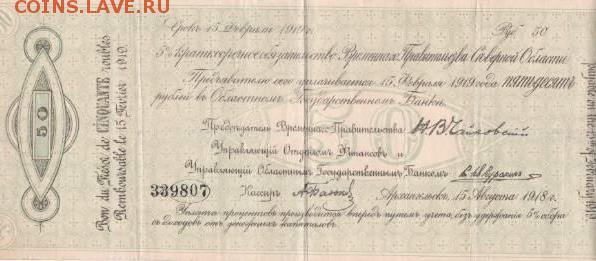 COINS.LAV.RU
Срокъ 15 Февраля 1919 г. Руб. 50
5% Краткосрочное обязательство Временнаго Правительства Сѣверной Области
Предъявителю сего уплачивается 15 Февраля 1919 года пятьдесятъ
рублей въ Областномъ Государственномъ Банкѣ.
Предсѣдатель Временнаго Правительства Н.В.Чайковскій
Управляющій Отдѣломъ Финансовъ и
Управляющій Областнымъ Государственнымъ Банкомъ
339807 Кассиръ
Архангельскъ, 15 Августа 1918 г.
Уплата процентовъ производится впередъ путемъ учета, безъ удержанія 5% сбора
съ доходовъ отъ денежныхъ капиталовъ.
50
Bon du Trésor de CINQUANTE roubles
Remboursable le 15 Février 1919.
50